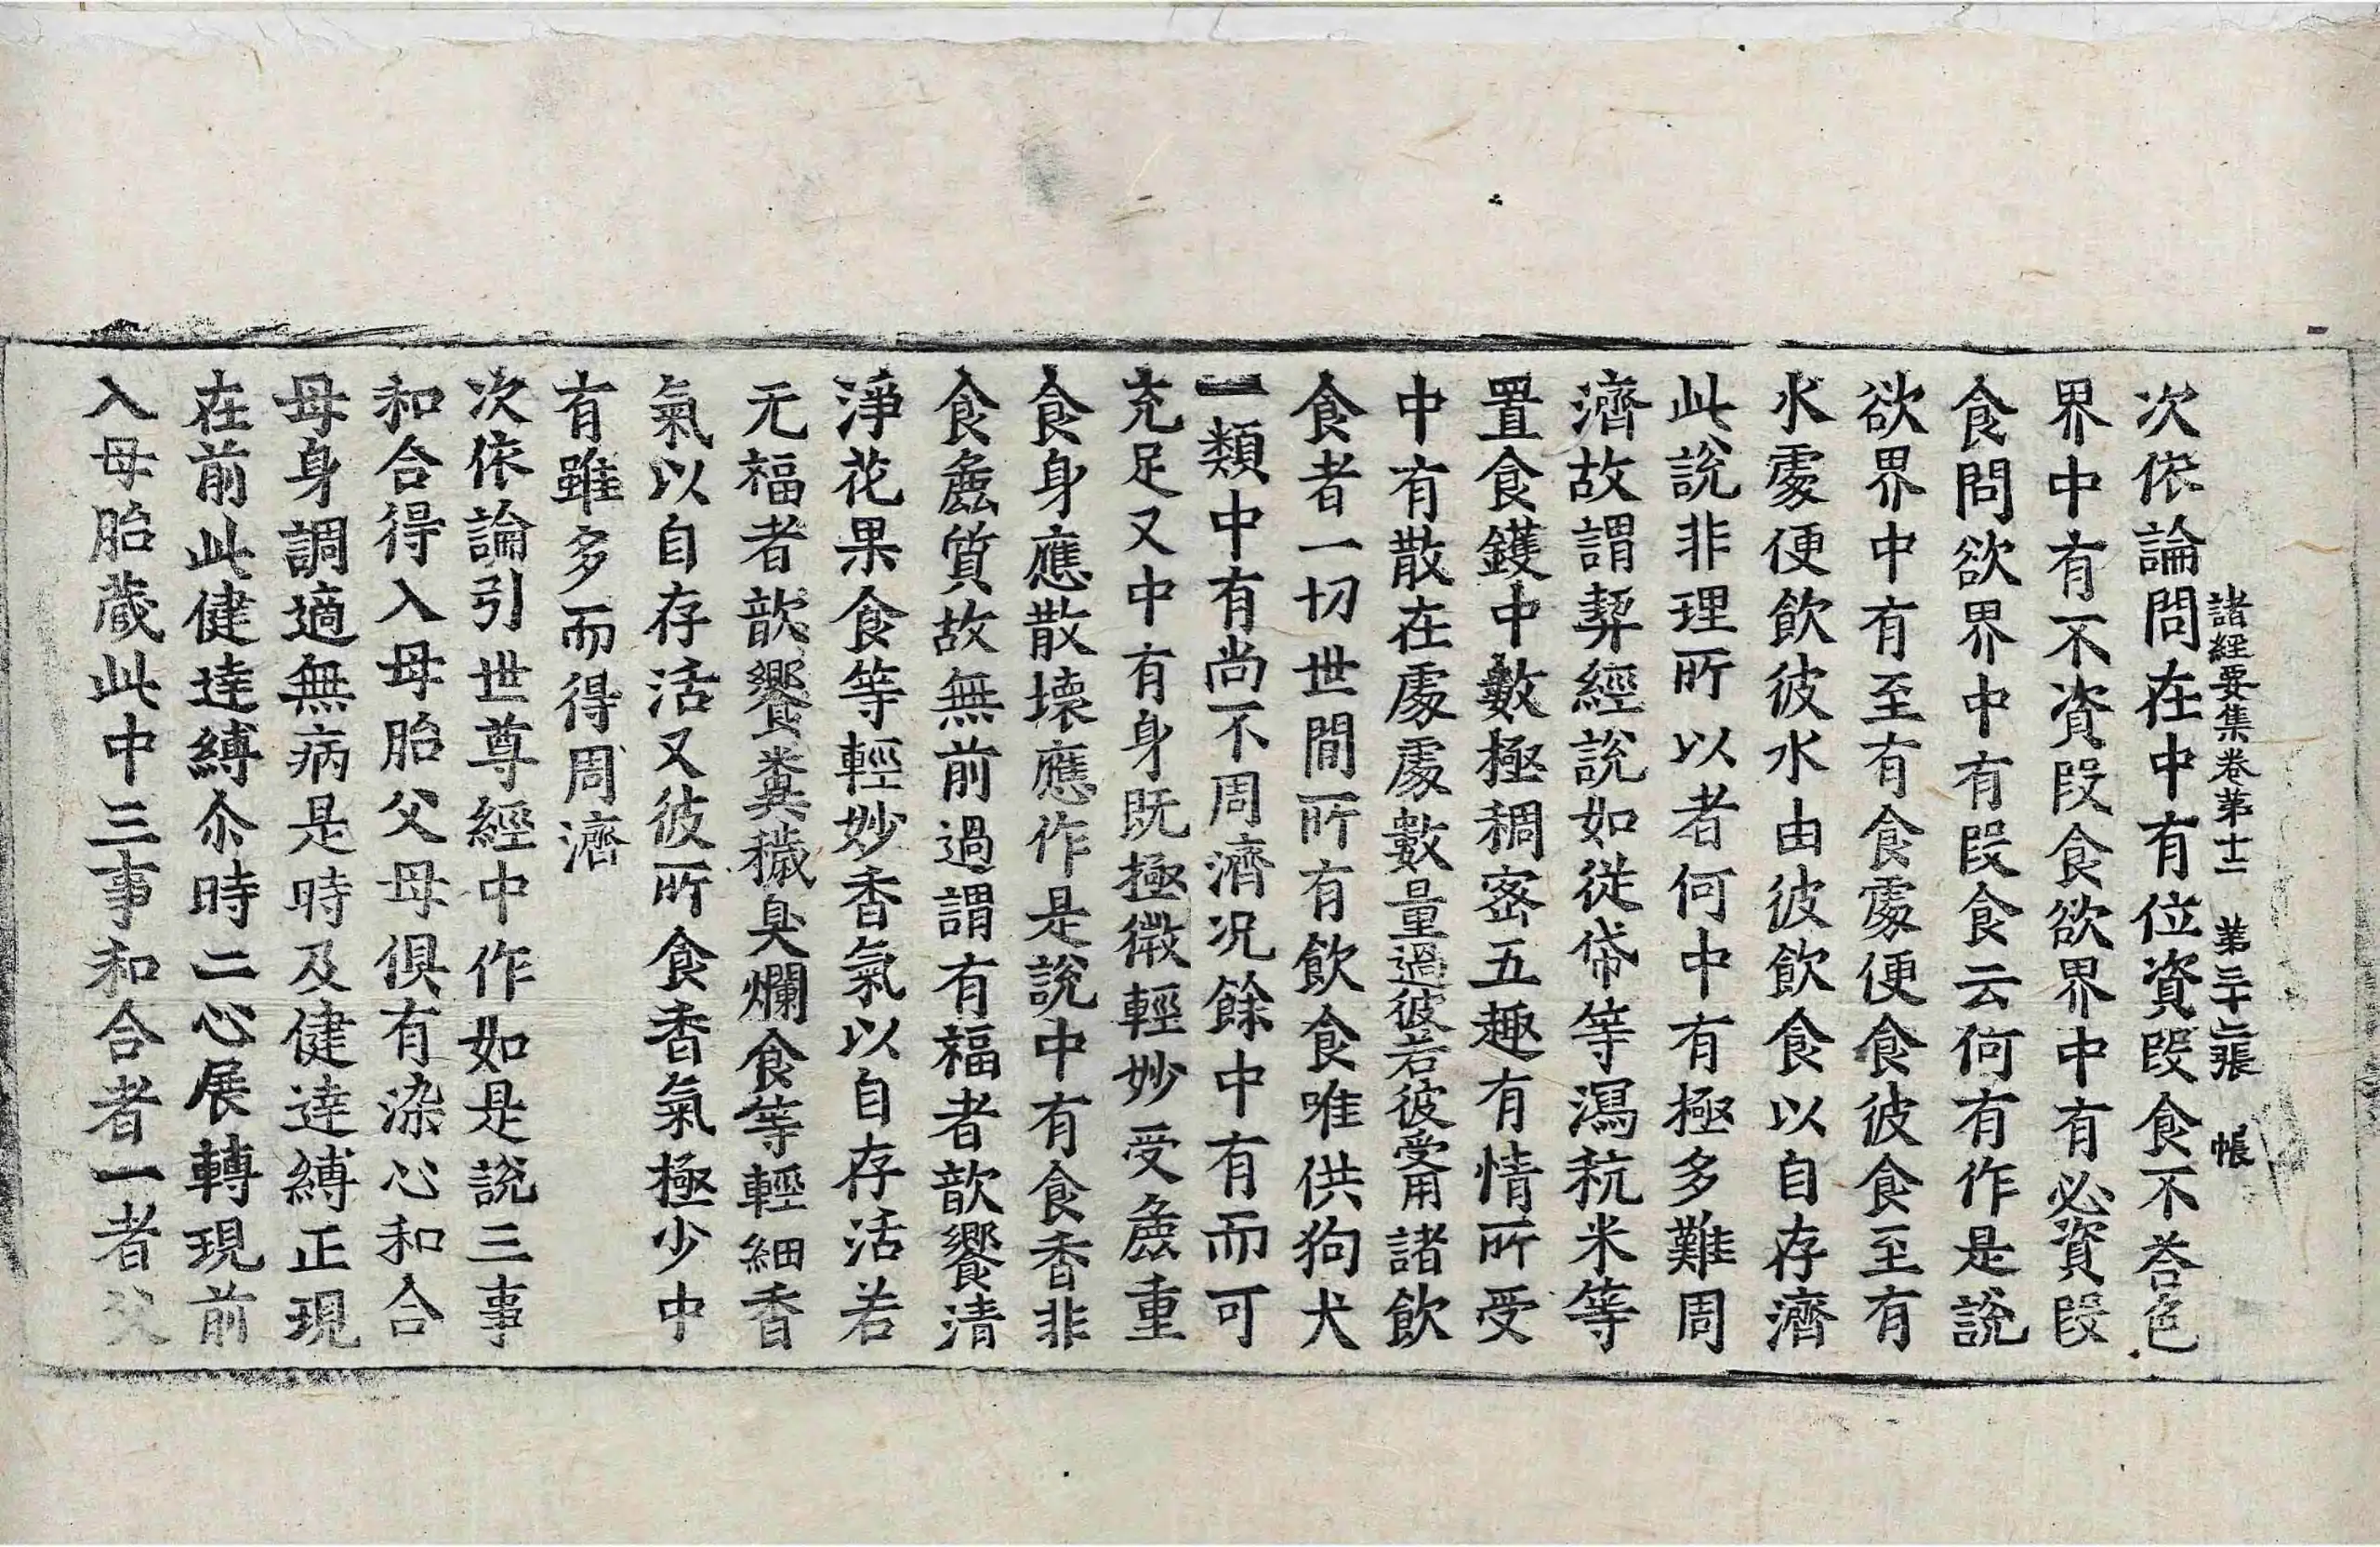 諸經要集卷第十二　第三十二張　帳
次依論問在中有位資段食不荅色
界中有不資段食欲界中有必資段
食問欲界中有段食云何有作是說
欲界中有至有食處便食彼食至有
水處便飲彼水由彼飲食以自存濟
此說非理所以者何中有極多難周
濟故謂契經說如從帒等瀉秔米等
置食鑊中數極稠宻五趣有情所受
中有散在處處數量過彼若彼受用諸飲
食者一切世間所有飲食唯供狗犬
一類中有尚不周濟况餘中有而可
充足又中有身既極微輕妙受麁重
食身應散壞應作是說中有食香非
食麁質故無前過謂有福者歆饗清
淨花果食等輕妙香氣以自存活若
无福者歆饗糞穢臭爛食等輕細香
氣以自存活又彼所食香氣極少中
有雖多而得周濟
次依論引世尊經中作如是說三事
和合得入母胎父母俱有染心和合
母身調適無病是時及健達縛正現
在前此健達縛尒時二心展轉現前
入母胎藏此中三事和合者一者父